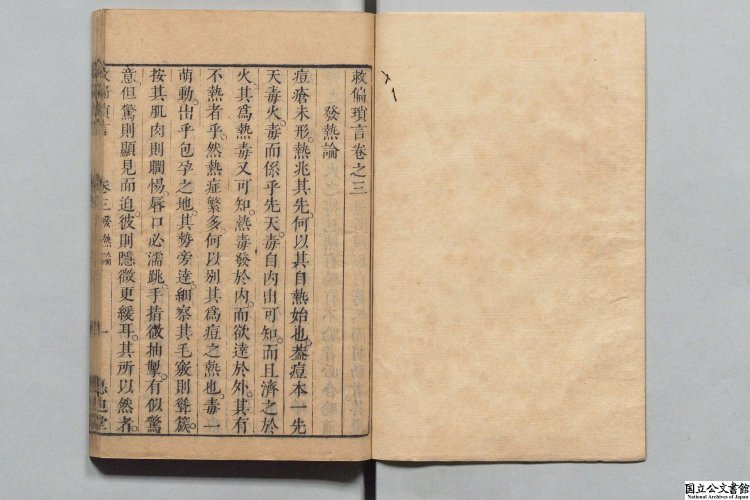 救偏瑣言卷之三
發熱論
痘瘡未形。熱兆其先。何以其自熱始也。蓋痘本一先
天毒火。毒而係乎先天。毒自內出可知。而且濟之於
火。其為熱毒又可知。熱毒發於內。而欲達於外。其有
不熱者乎。然熱症繁多。何以別其為痘之熱也。毒一
萌動。出乎包孕之地。其勢旁達。細察其毛竅則聳簇。
按其肌肉則瞤惕。唇口必濡跳。手指微抽掣。有似驚
意。但驚則顯見而迫。彼則隱微更緩耳。其所以然者。
救偏瑣言
卷三 發熱論
一
惠迪堂
国立公文書館
National Archives of Japan